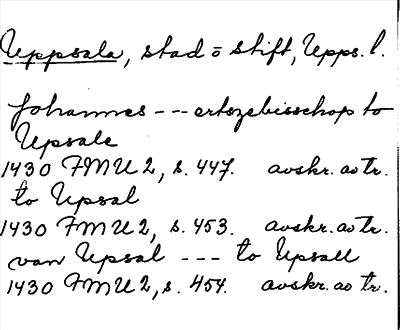 Uppsala, stad o stift, Upps. l.
Johannes --- ertszebisschop to
Upsale
1430 FMU 2, s. 447. avskr. av tr.
to Upsal
1430 FMU 2, s. 453. avskr. av tr.
van Upsal --- to Upsall
1430 FMU 2, s. 454. avskr. av tr.